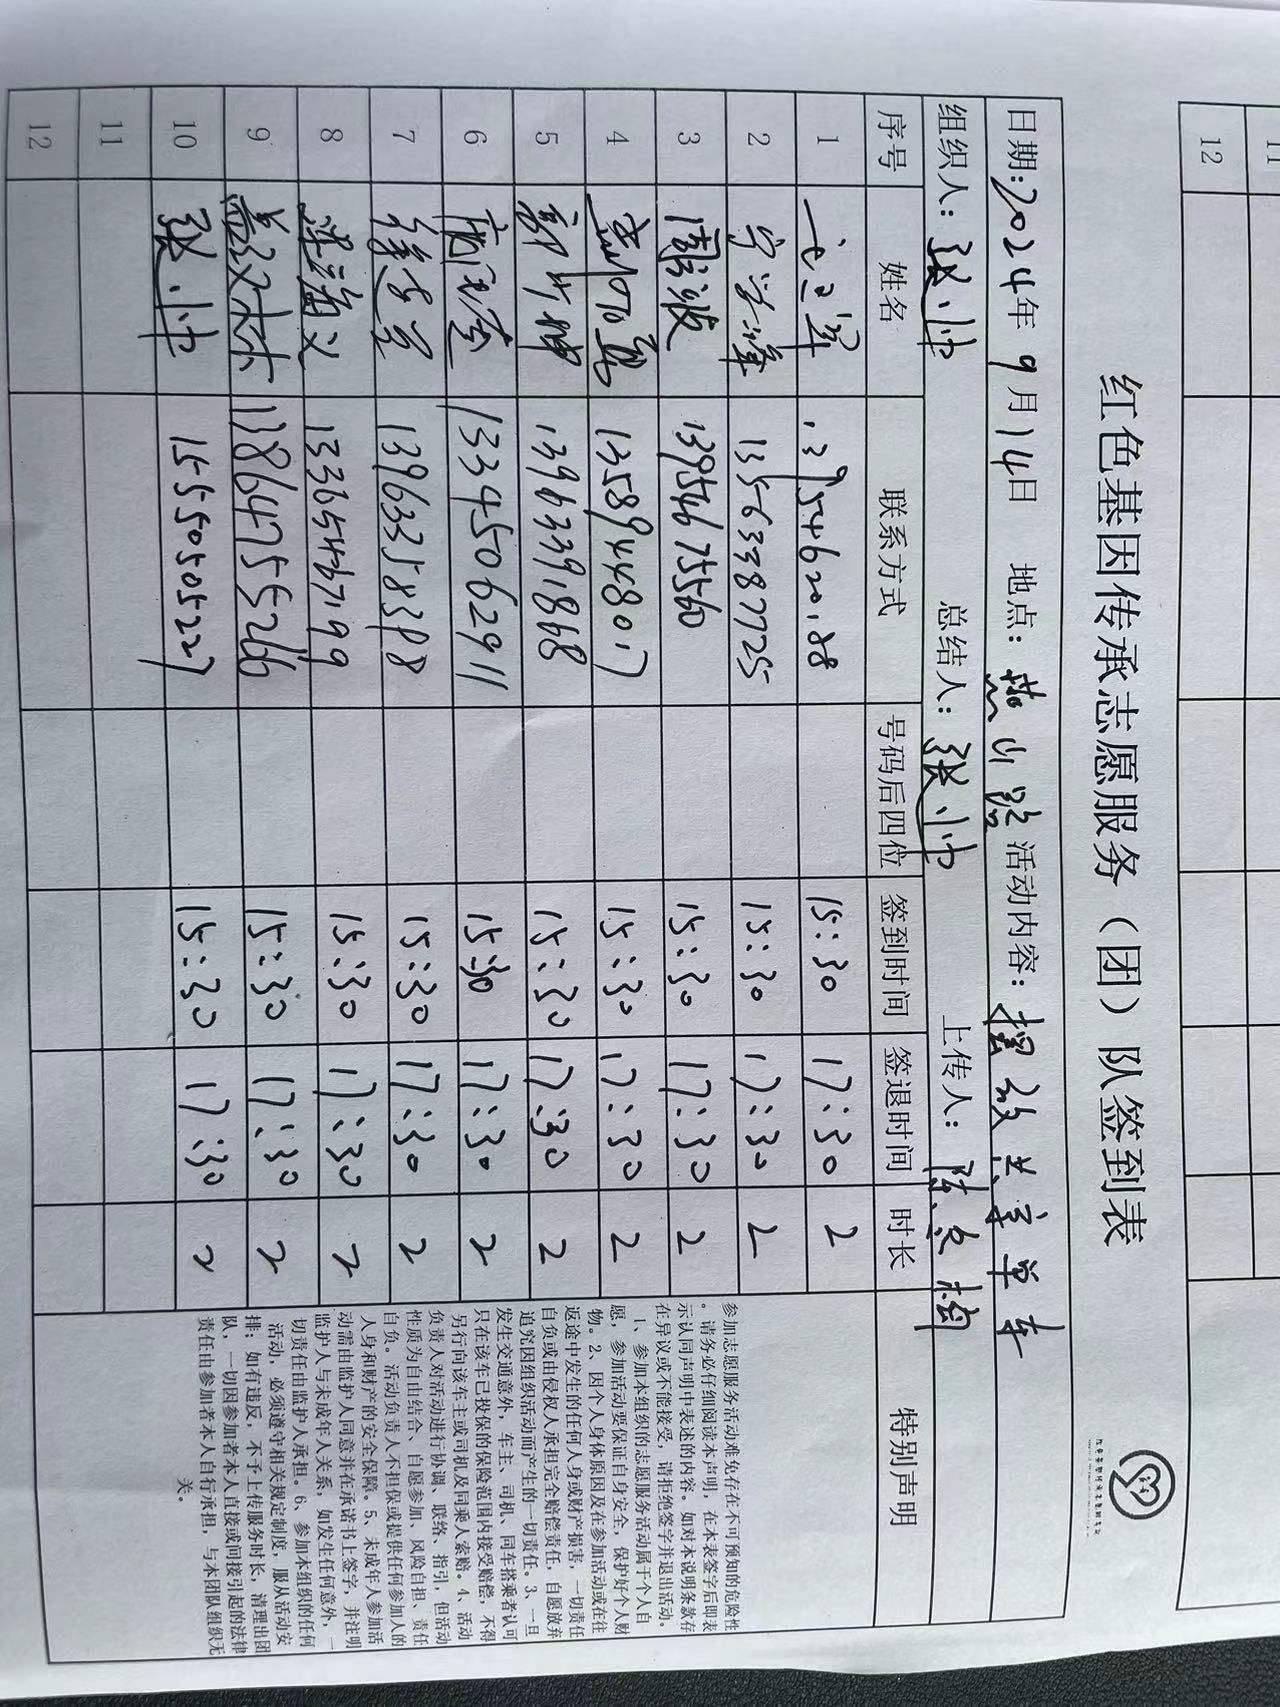 11
12
红色基因传承志愿服务（团）队签到表
日期:2024年9月14日 地点: 燕山路 活动内容: 摆放共享单车
组织人: 张小帅 总结人: 张小帅 上传人:
序号 姓名 联系方式 号码后四位 签到时间 签退时间 时长 特别声明
1 15:30 17:30 2
2 13563387725 15:30 17:30 2
3 周波 13954675560 15:30 17:30 2
4 13589448017 15:30 17:30 2
5 13963391868 15:30 17:30 2
6 13345062911 15:30 17:30 2
7 13963358388 15:30 17:30 2
8 13365467199 15:30 17:30 2
9 13864755266 15:30 17:30 2
10 张小帅 15550505227 15:30 17:30 2
11
12
参加志愿服务活动难免存在不可预知的危险性
。请务必仔细阅读本声明，在本表签字后即表
示认同声明中表述的内容。如对本说明条款存
在异议或不能接受，请拒绝签字并退出活动。
1、参加本组织的志愿服务活动属于个人自
愿，参加活动要保证自身安全，保护好个人财
物。2、因个人身体原因及在参加活动或在往
返途中发生的任何人身或财产损害，一切责任
自负或由侵权人承担完全赔偿责任，自愿放弃
追究因组织活动而产生的一切责任。3、一旦
发生交通意外，车主、司机、同车搭乘者认可
只在该车已投保的保险范围内接受赔偿，不得
另行向该车主或司机及同乘人索赔。4、活动
负责人对活动进行协调、联络、指引，但活动
性质为自由结合、自愿参加、风险自担、责任
自负。活动负责人不担保或提供任何参加人的
人身和财产的安全保障。5、未成年人参加活
动需由监护人同意并在承诺书上签字，并注明
监护人与未成年人关系，如发生任何意外，一
切责任由监护人承担。6、参加本组织的任何
活动，必须遵守相关规定制度，服从活动安
排；如有违反，不予上传服务时长，清理出团
队，一切因参加者本人直接或间接引起的法律
责任由参加者本人自行承担，与本团队组织无
关。